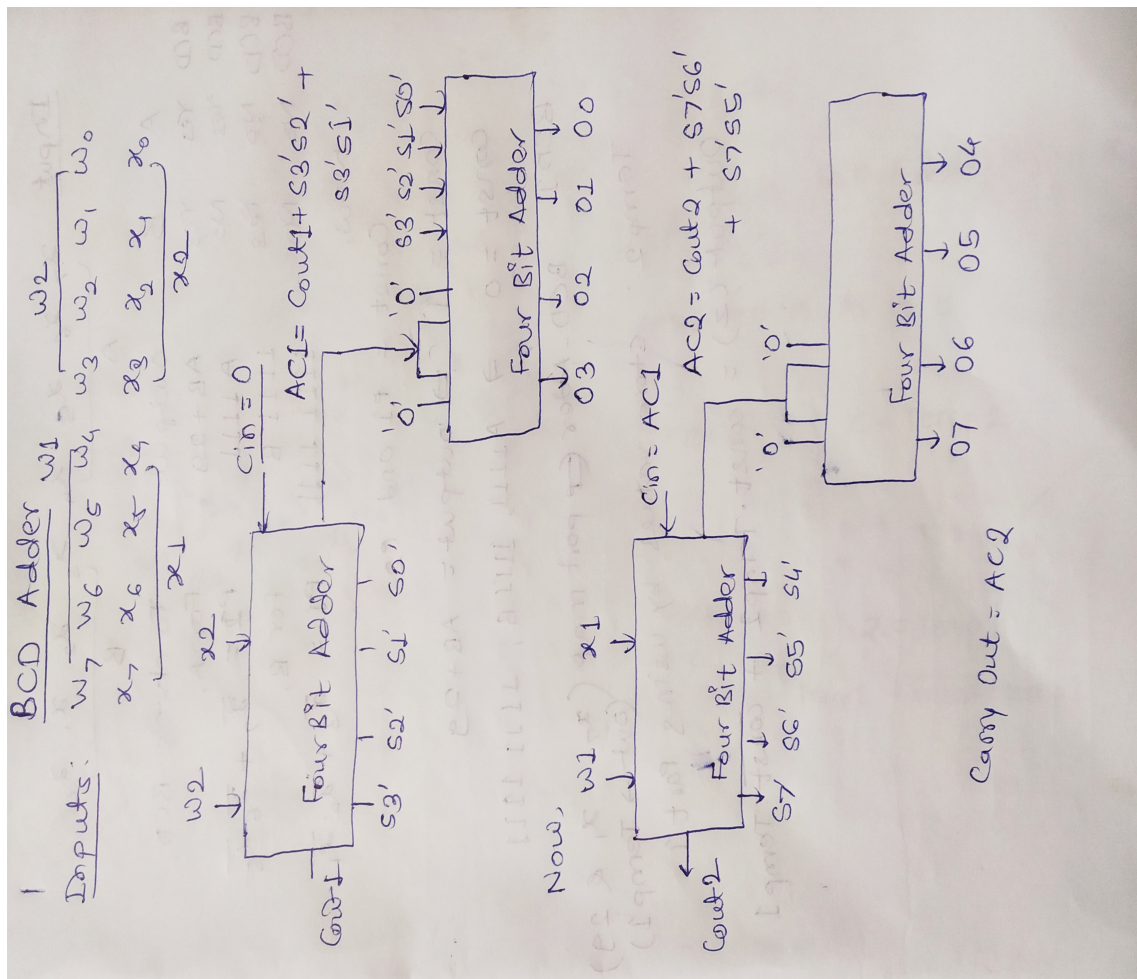 1 BCD Adder
W1 W2
Inputs: W7 W6 W5 W4 W3 W2 W1 W0
x7 x6 x5 x4 x3 x2 x1 x0
x1 x2
W2 x2
Cin = 0
Four Bit Adder
Cout1
S3' S2' S1' S0'
AC1 = Cout1 + S3'S2' +
S3'S1'
'0' '0' S3' S2' S1' S0'
Four Bit Adder
03 02 01 00
Now,
W1 x1
Cin = AC1
Four Bit Adder
Cout2
S7' S6' S5' S4'
AC2 = Cout2 + S7'S6'
+ S7'S5'
'0' '0'
Four Bit Adder
07 06 05 04
Carry Out = AC2